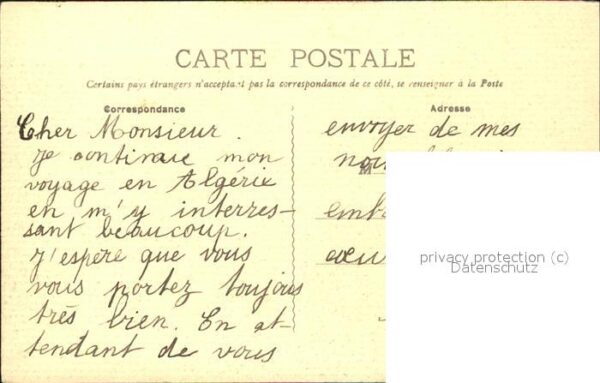 CARTE POSTALE
Certains pays étrangers n'acceptant pas la correspondance de ce côté, se renseigner à la Poste
Correspondance
Cher Monsieur.
Je continue mon
voyage en Algérie
en m'y interres-
sant beaucoup.
J'espère que vous
vous portez toujours
très bien. En at-
tendant de vous
Adresse
envoyer de mes
privacy protection (c)
Datenschutz